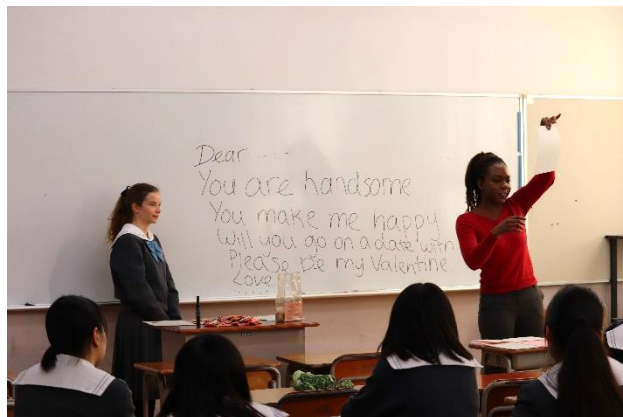 Dear .....
You are handsome
You make me happy
Will you go on a date with
Please be my Valentine
Love